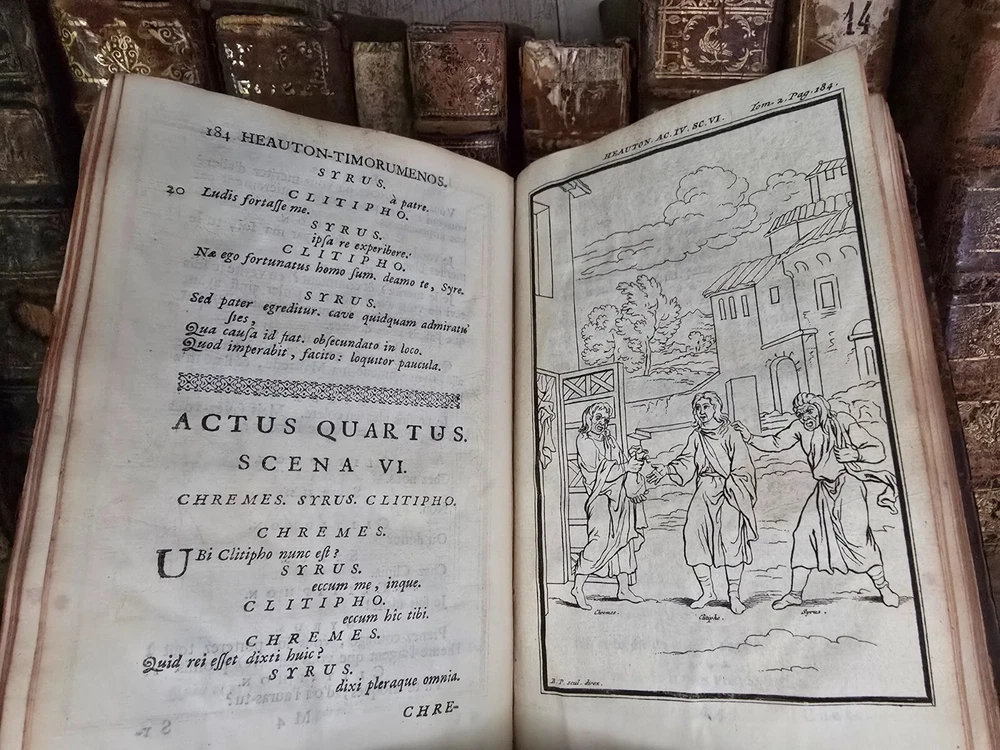 14
184 HEAUTON-TIMORUMENOS.
SYRUS.
à patre.
CLITIPHO.
20 Ludis fortaſſe me.
SYRUS.
ipſa re experibere.
CLITIPHO.
Næ ego fortunatus homo ſum. deamo te, Syre.
SYRUS.
Sed pater egreditur. cave quidquam admiratu'
ſies,
Qua cauſa id fiat. obſecundato in loco.
Quod imperabit, facito: loquitor paucula.
ACTUS QUARTUS.
SCENA VI.
CHREMES. SYRUS. CLITIPHO.
CHREMES.
UBi Clitipho nunc eſt?
SYRUS.
eccum me, inque.
CLITIPHO.
eccum hic tibi.
CHREMES.
Quid rei eſſet dixti huic?
SYRUS.
dixi pleraque omnia.
CHRE-
HEAUTON. AC. IV. SC. VI.
Tom. 2. Pag. 184.
Chremes.
Clitipho.
Syrus.
B.P. scul. direx.